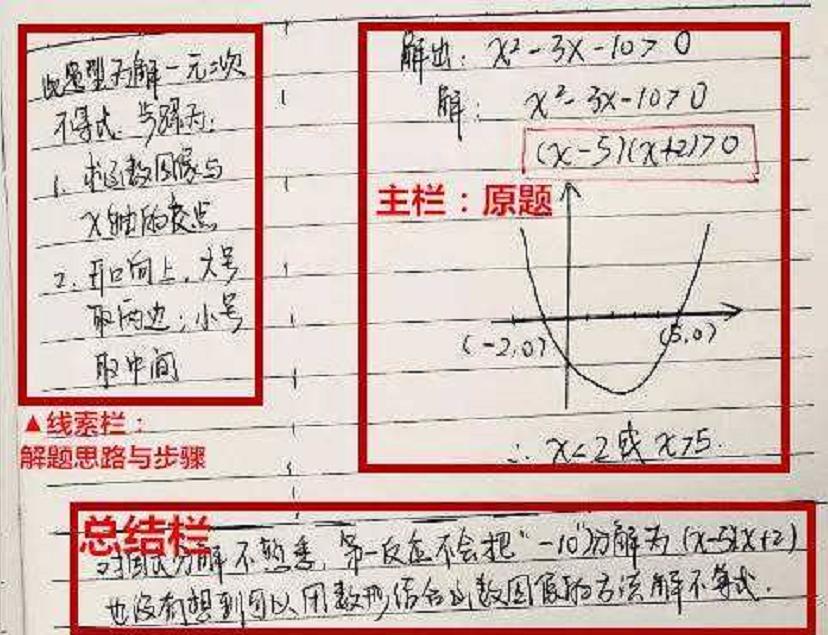 此题型为解一元二次
不等式.步骤为:
1. 求函数图像与
x轴的交点
2. 开口向上,大号
取两边;小号
取中间
▲线索栏:
解题思路与步骤
解出: x²-3x-10>0
解: x²-3x-10>0
(x-5)(x+2)>0
主栏:原题
(-2,0) (5,0)
∴ x<2或x>5.
总结栏
对因式分解不熟悉,第一反应不会把“-10”分解为(x-5)(x+2)
也没有想到可以用数形结合函数图像的方法解不等式.